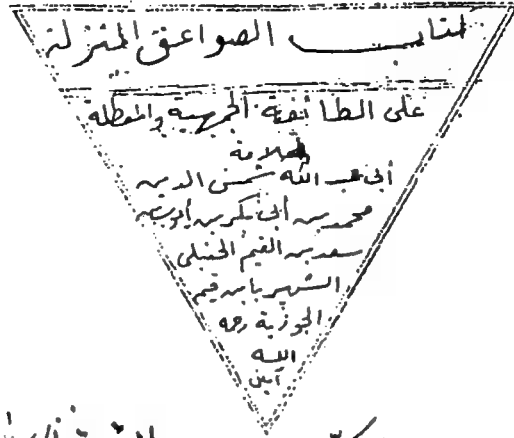 كتاب الصواعق المنزلة
على الطائفة الجهمية والمعطلة
للعلامة
أبي عبد الله شمس الدين
محمد بن أبي بكر بن أيوب بن
سعد بن القيم الحنبلي
الشهير بابن قيم
الجوزية رحمه
الله
آمين